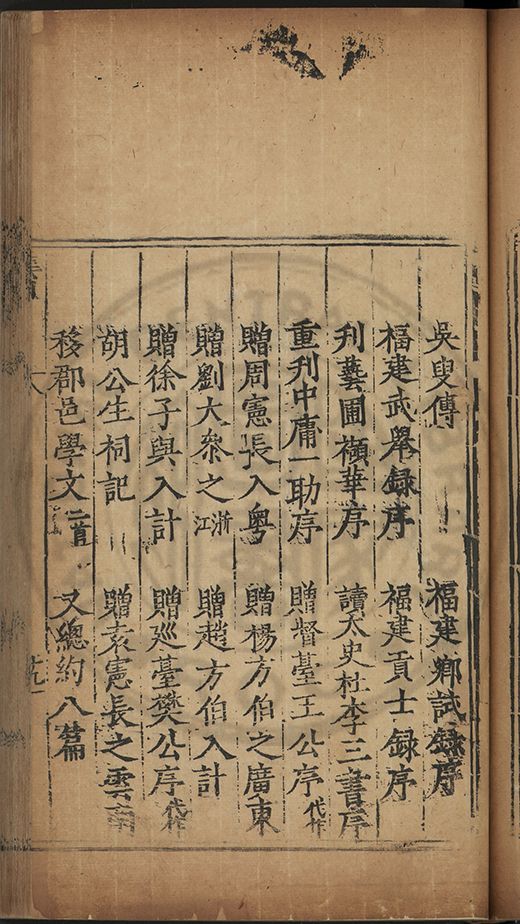 吳叟傳 福建鄉試錄序
福建武舉錄序 福建貢士錄序
刋藝圃擷華序 讀太史杜李三書序
重刋中庸一助序 贈督臺王公序代作
贈周憲長入粤 贈楊方伯之廣東
贈劉大叅之浙江 贈趙方伯入計
贈徐子與入計 贈廵臺樊公序代作
胡公生祠記 贈袁憲長之雲南
移郡邑學文二首 又總約八篇